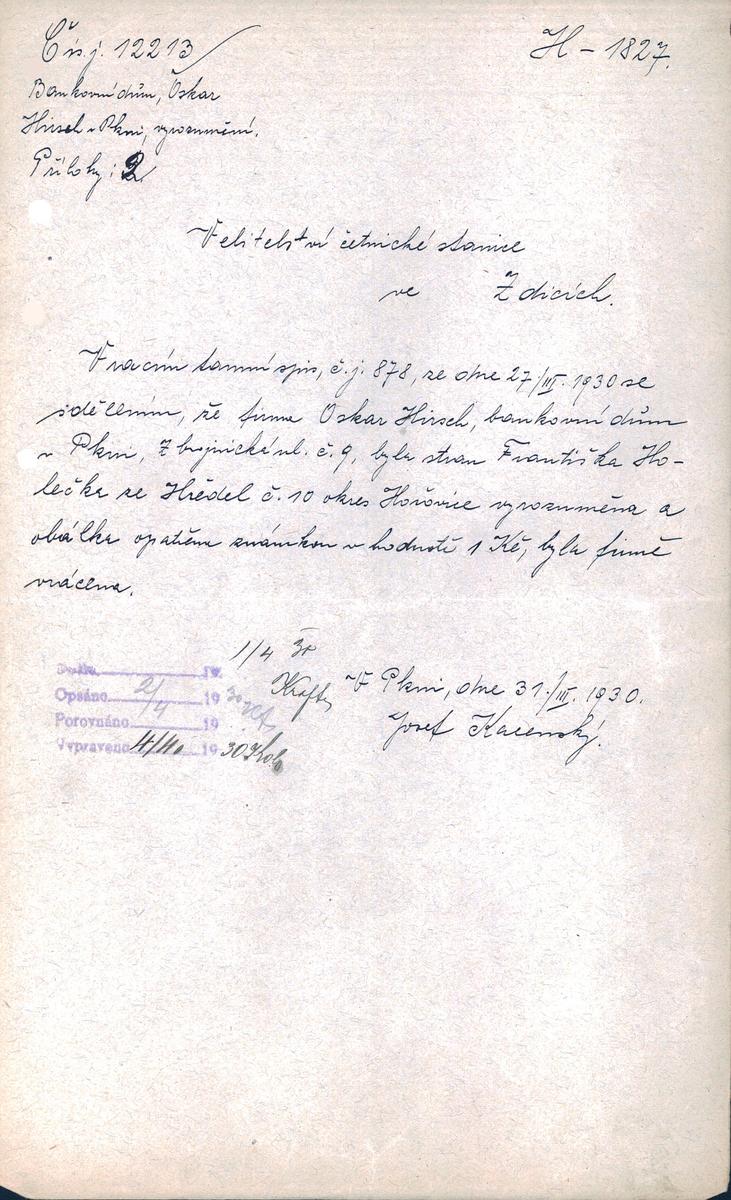 Čís. j. 12213
H - 1827.
Bankovní dům, Oskar
Hirsch v Plzni, vyrozumění.
Přílohy: 2
Velitelství četnické stanice
ve Zdicích.
Vracím tamní spis, č. j. 878, ze dne 27./III. 1930 se
sdělením, že firma Oskar Hirsch, bankovní dům
v Plzni, Zbrojnická ul. č. 9, byla stran Františka Ho-
lečka ze Hředel č. 10 okres Hořovice vyrozuměna a
obálka opatřena známkou v hodnotě 1 Kč, byla firmě
vrácena.
1/4 30
V Plzni, dne 31./III. 1930.
Josef
Došlo 19
Opsáno 2/4 19 30
Porovnáno 19
Vypraveno 4/4 19 30